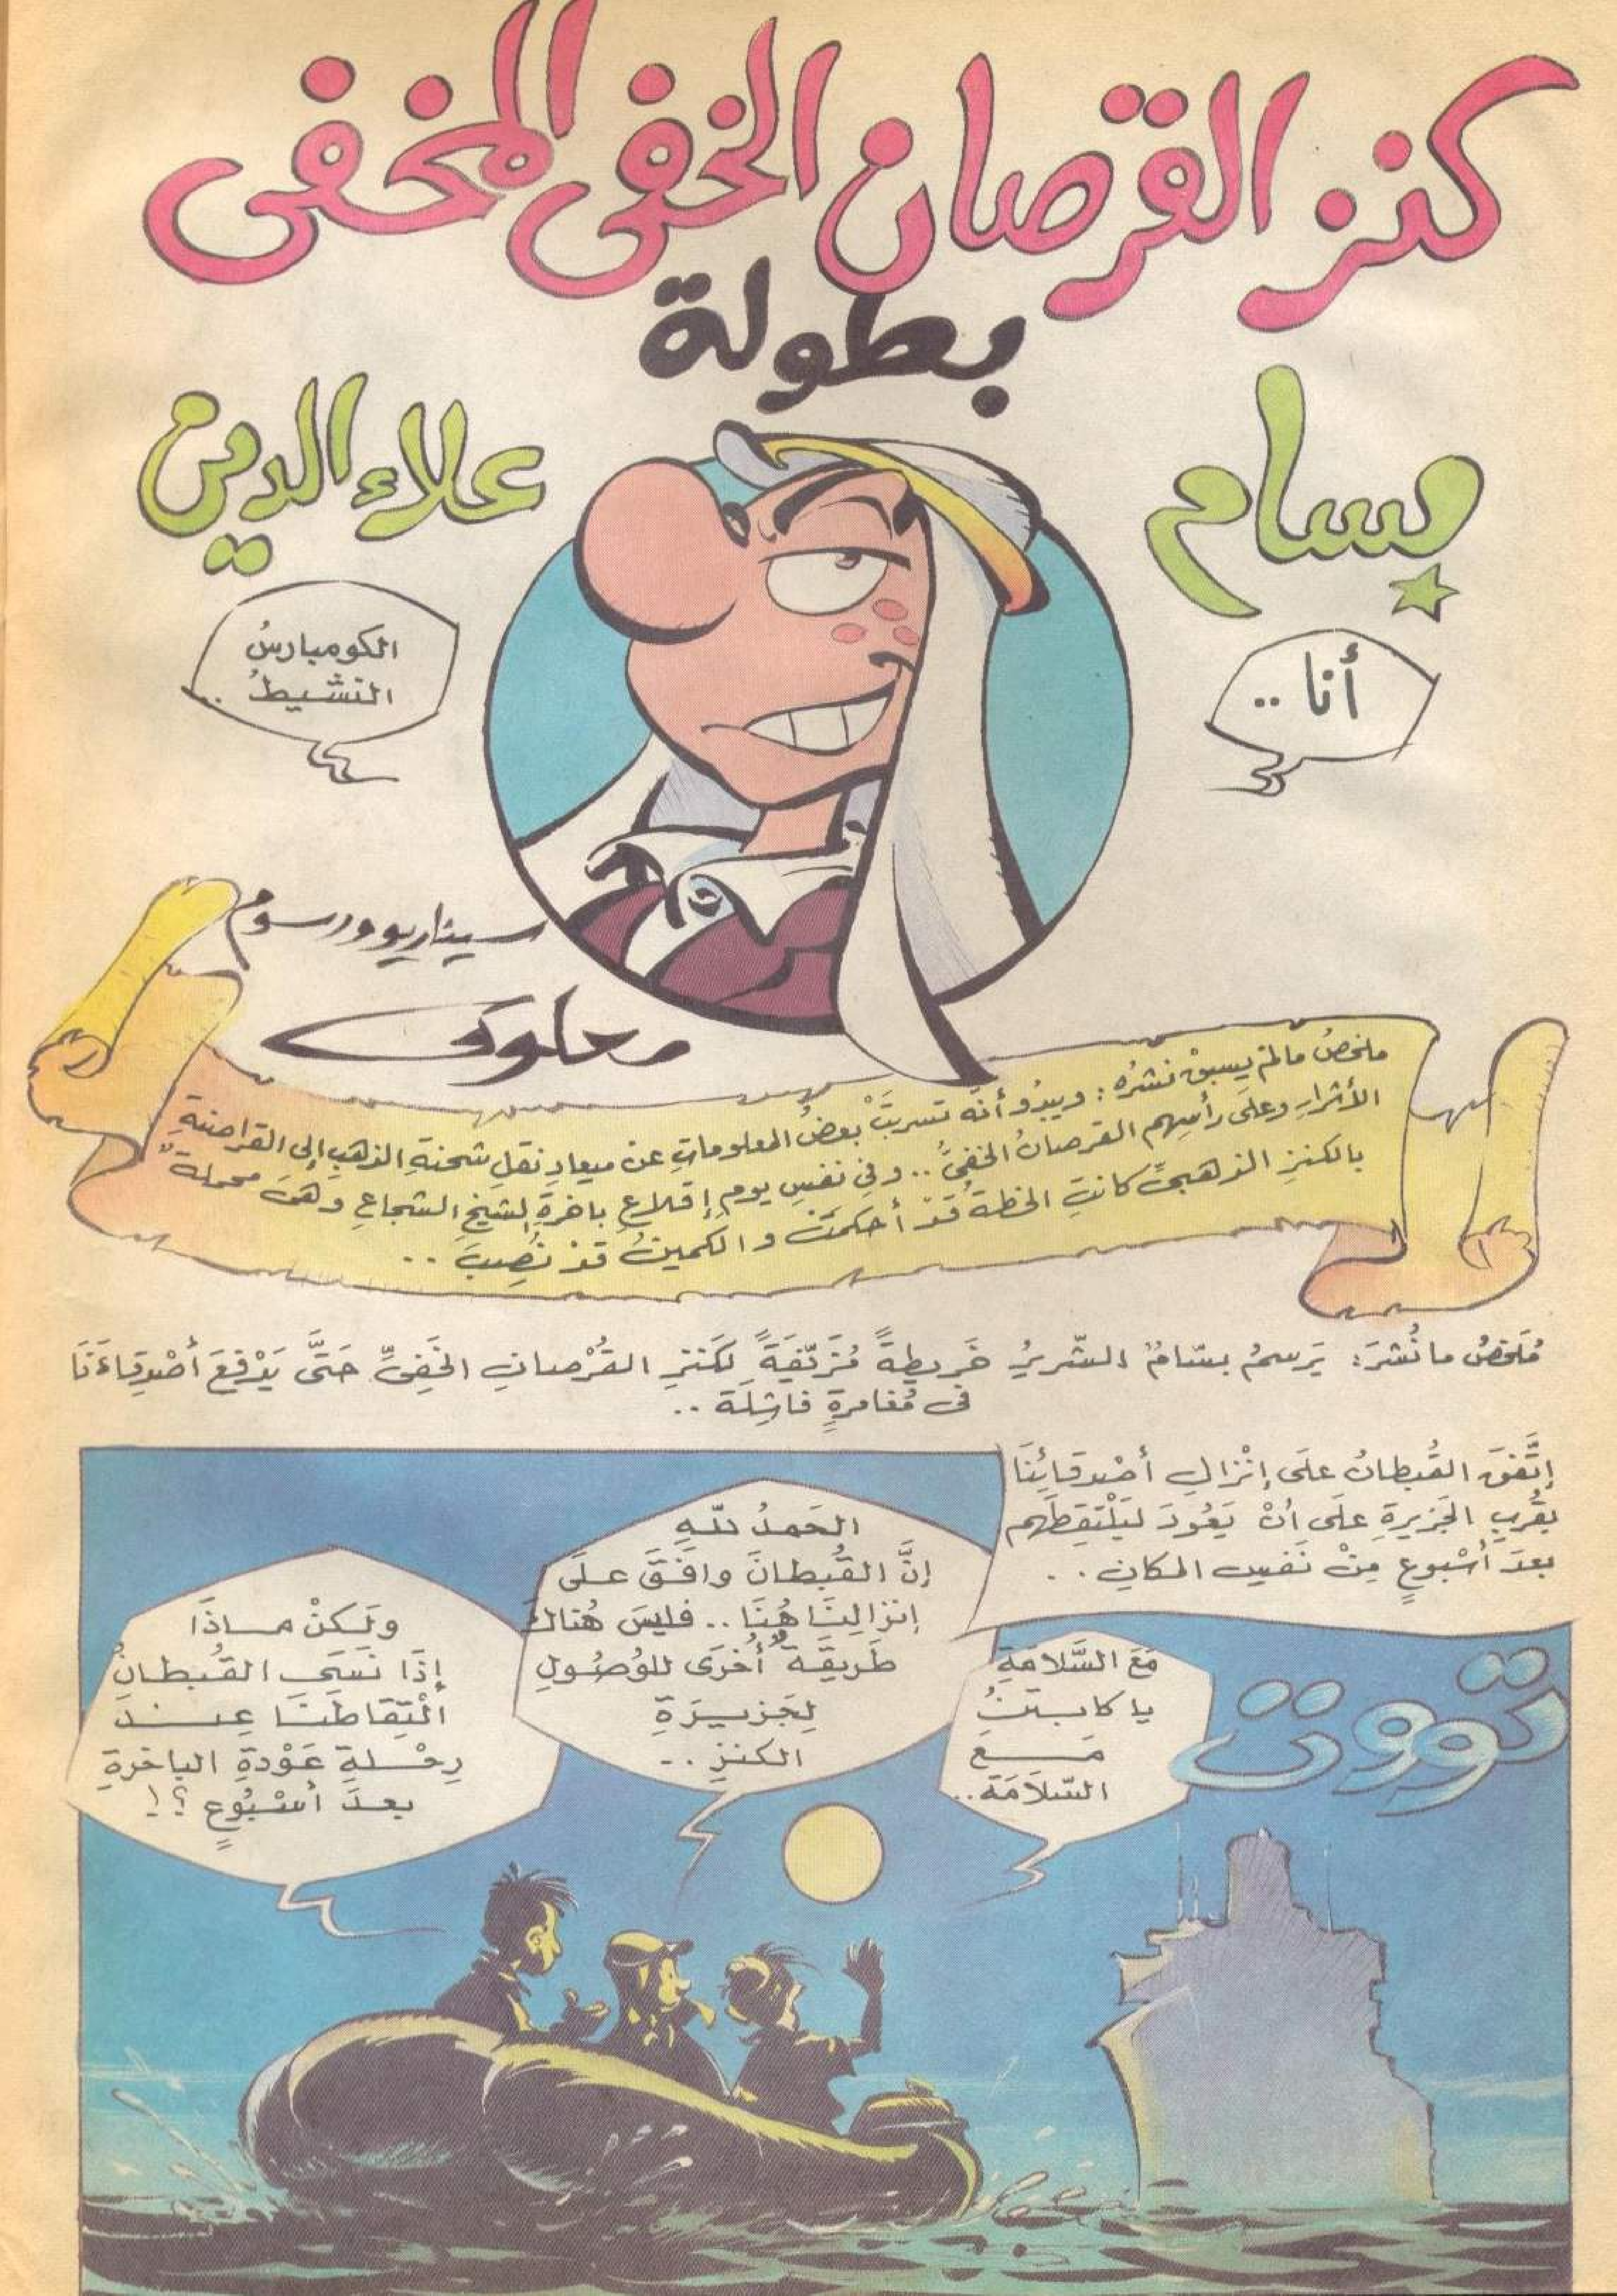 كنز القرصان الخفى المخفى
بطولة
بسام
علاء الدين
أنا ..
الكومبارسُ
النشيطُ ..
سيناريو ورسوم
معلوف
ملخصُ مالمْ يسبقْ نشرُه : ويبدُو أنَّه تسربتْ بعضُ المعلوماتِ عن ميعادِ نقلِ شحنةِ الذهبِ إلى القراصنةِ
الأشرارِ وعلَى رأسِهم القرصانُ الخفىُّ .. وفى نفسِ يومِ إقلاعِ باخرةِ الشيخِ الشجاعِ وهىَ محملةٌ
بالكنزِ الذهبىِّ كانتِ الخطةُ قدْ أحكمتْ والكمينُ قدْ نُصِبَ ..
مُلَخصُ ما نُشرَ : يَرسمُ بسّامُ الشّريرُ خَريطةً مُزَيّفةً لكَنزِ القُرْصانِ الخَفِىِّ حَتَّى يَدْفعَ أصْدِقاءَنَا
فى مُغامرةٍ فاشِلَة ..
إتَّفقَ القُبطانُ علَى إنْزالِ أصْدِقائِنَا
بقُربِ الجَزيرةِ علَى أنْ يَعُودَ ليَلْتقِطَهم
بعدَ أسْبوعٍ مِنْ نَفسِ المكانِ ..
تووووت
مَعَ السَّلامَةِ
يا كابتنُ
مَعَ
السَّلامَة ..
الحَمدُ للّهِ
إنَّ القُبطانَ وافَقَ علَى
إنزالِنَا هُنَا .. فليسَ هُناكَ
طَريقةٌ أُخرَى للوُصُولِ
لِجَزيرَةِ
الكنزِ ..
ولَكنْ ماذَا
إذَا نَسِىَ القُبطانُ
الْتِقاطَنَا عِندَ
رِحْلةِ عَوْدةِ الباخرةِ
بعدَ أسْبُوعٍ ؟!